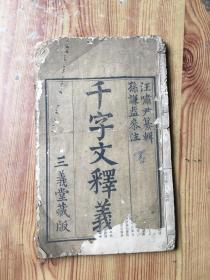 汪嘯尹纂輯
孫謙益參注
千字文釋義
三義堂藏版